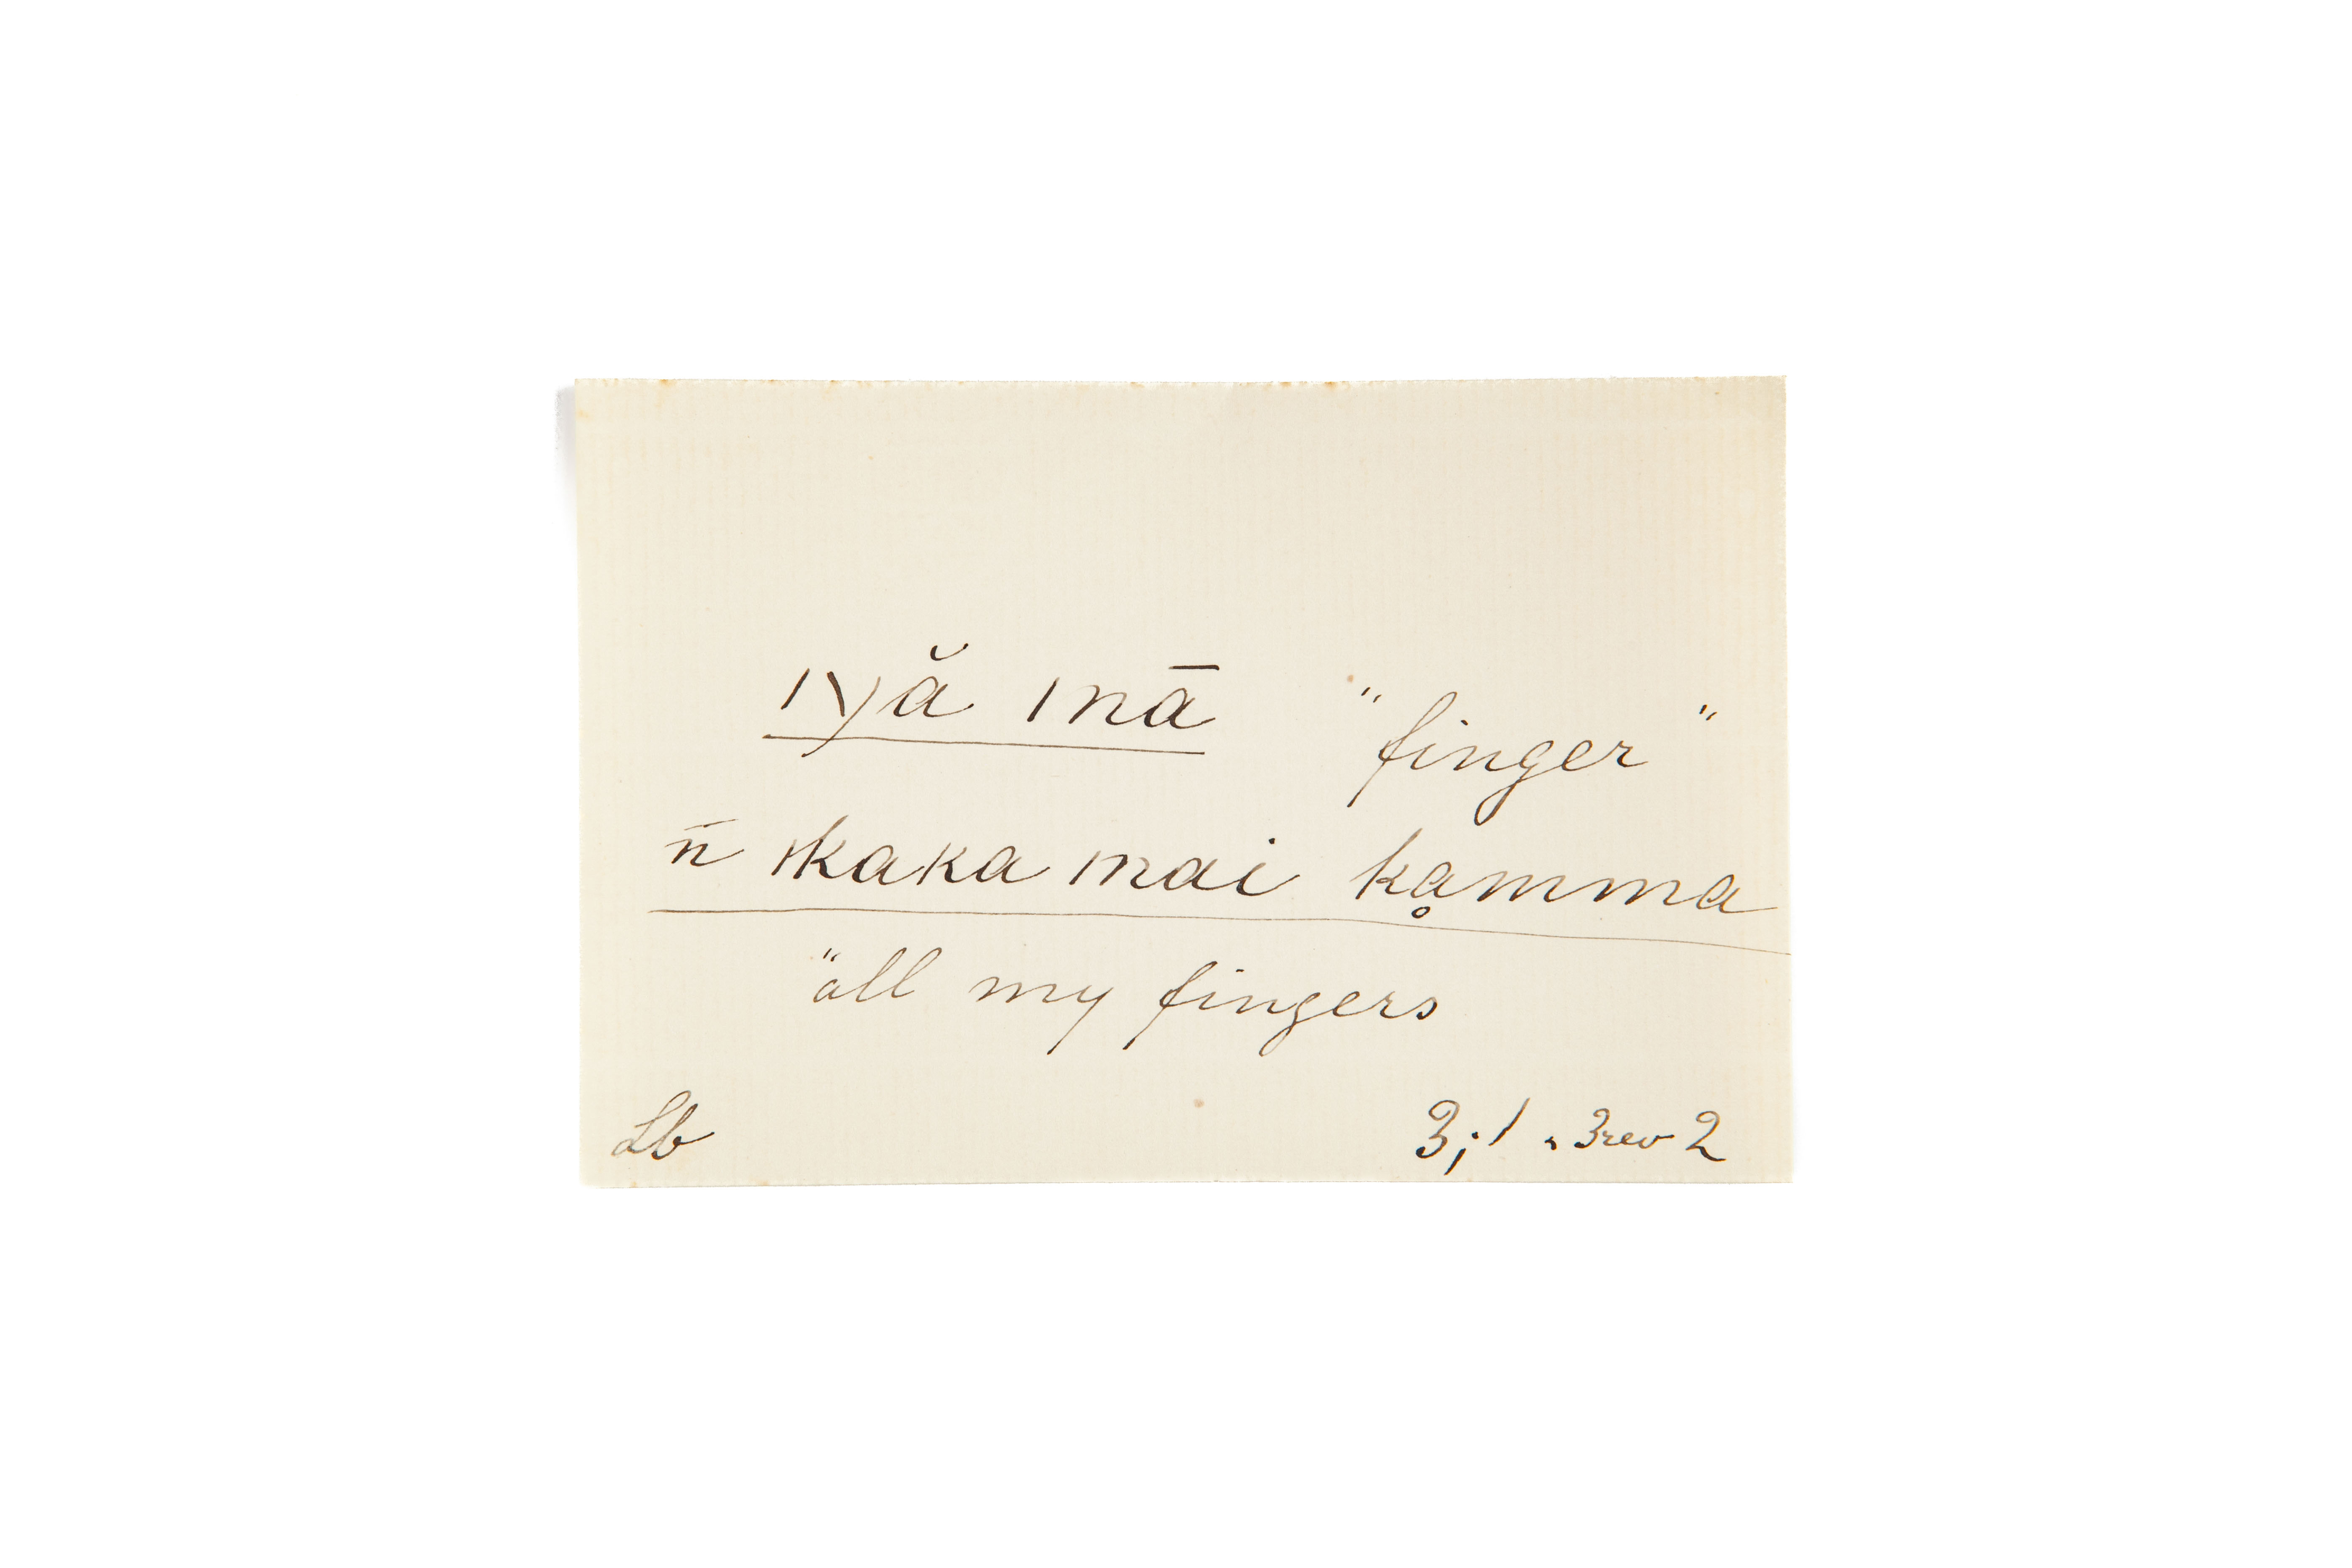 ıyă ınā "finger"
n̄ ıkaka ınai kḁmma
"all my fingers
Lb 3;1 . 3rev 2